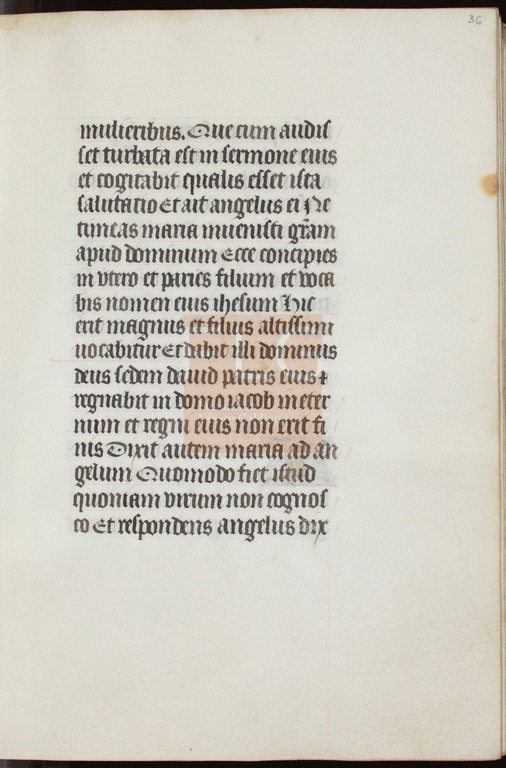 36
mulieribus. Que cum audis
set turbata est in sermone eius
et cogitabit qualis esset ista
salutatio Et ait angelus ei Ne
timeas maria inuenisti gr̄am
apud dominum Ecce concipies
in vtero et paries filium et voca
bis nomen eius ihesum Hic
erit magnus et filius altissimi
uocabitur Et dabit illi dominus
deus sedem dauid patris eius ⁊
regnabit in domo iacob in eter
num et regni eius non erit fi
nis Dixit autem maria ad an
gelum Quomodo fiet istud
quoniam virum non cognos
co Et respondens angelus dix